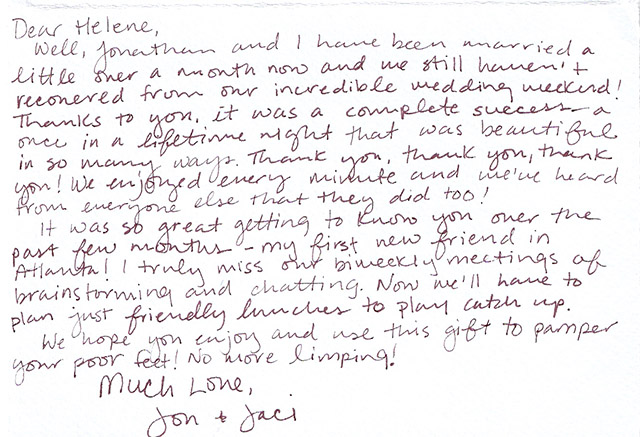 Dear Helene,
Well, Jonathan and I have been married a
little over a month now and we still haven't
recovered from our incredible wedding weekend!
Thanks to you, it was a complete success - a
once in a lifetime night that was beautiful
in so many ways. Thank you, thank you, thank
you! We enjoyed every minute and we've heard
from everyone else that they did too!
It was so great getting to know you over the
past few months - my first new friend in
Atlanta! I truly miss our biweekly meetings of
brainstorming and chatting. Now we'll have to
plan just friendly lunches to play catch up.
We hope you enjoy and use this gift to pamper
your poor feet! No more limping!
Much Love,
Jon + Jaci